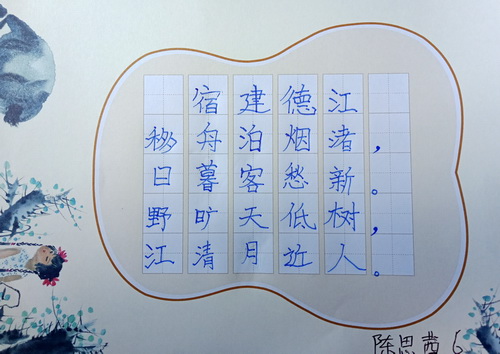 宿建德江
移舟泊烟渚，
日暮客愁新。
野旷天低树，
江清月近人。
陈思茜 6